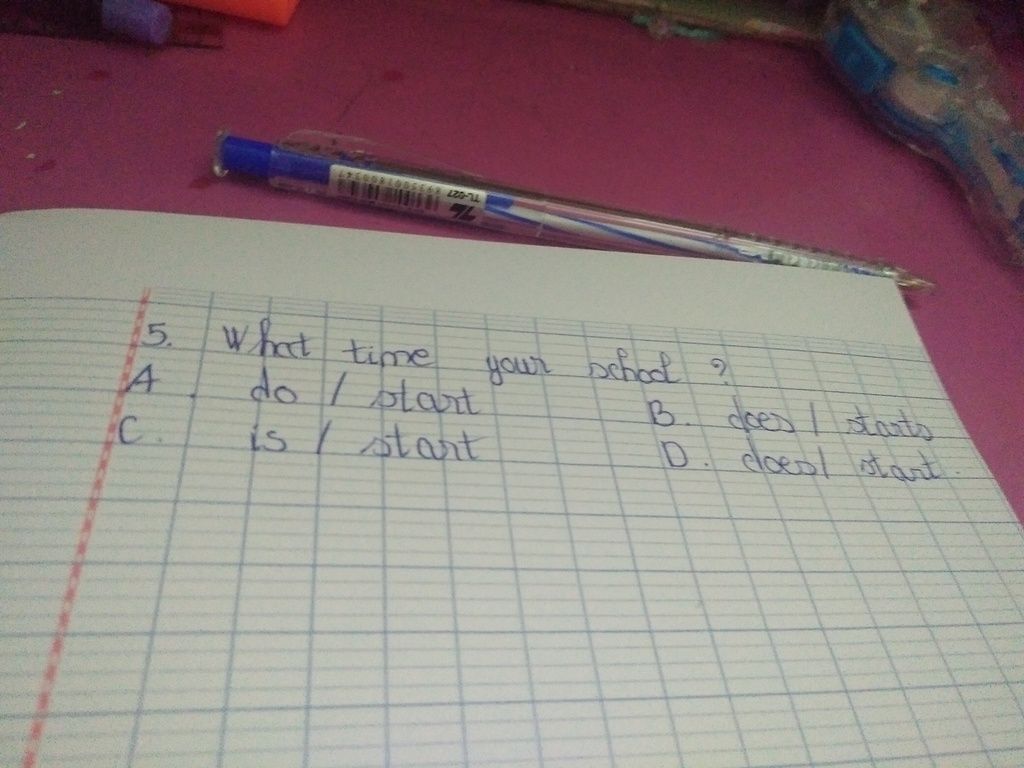 TL-027
8935001800347
5. What time your school ?
A. do / start B. does / starts
C. is / start D. does / start.